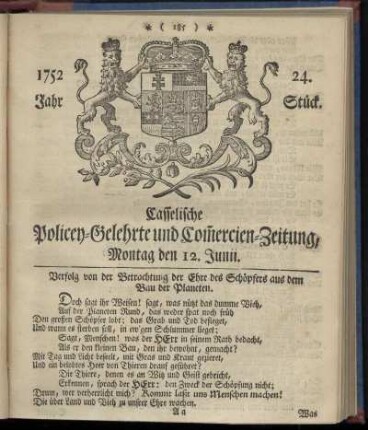 * ( 185 ) *
1752
24.
Jahr
Stück.
Casselische
Policey-Gelehrte und Com̃ercien-Zeitung,
Montag den 12. Junii.
Verfolg von der Betrachtung der Ehre des Schöpfers aus dem
Bau der Planeten.
Doch sagt ihr Weisen! sagt, was nützt das dumme Vieh,
Auf der Planeten Rund, das weder spat noch früh
Den großen Schöpfer lobt; das Grab und Tod besieget,
Und wann es sterben soll, in ew'gen Schlummer lieget;
Sagt, Menschen! was der HErr in seinem Rath bedacht,
Als er den kleinen Bau, den ihr bewohnt, gemacht?
Mit Tag und Licht beseelt, mit Gras und Kraut gezieret,
Und ein belebtes Heer von Thieren drauf geführet?
Die Thiere, denen es an Witz und Geist gebricht,
Erkennen, sprach der HErr: den Zweck der Schöpfung nicht;
Drum, wer verherrlicht mich? Kommt laßt uns Menschen machen!
Die über Land und Vieh zu unsrer Ehre wachen.
A a
Was